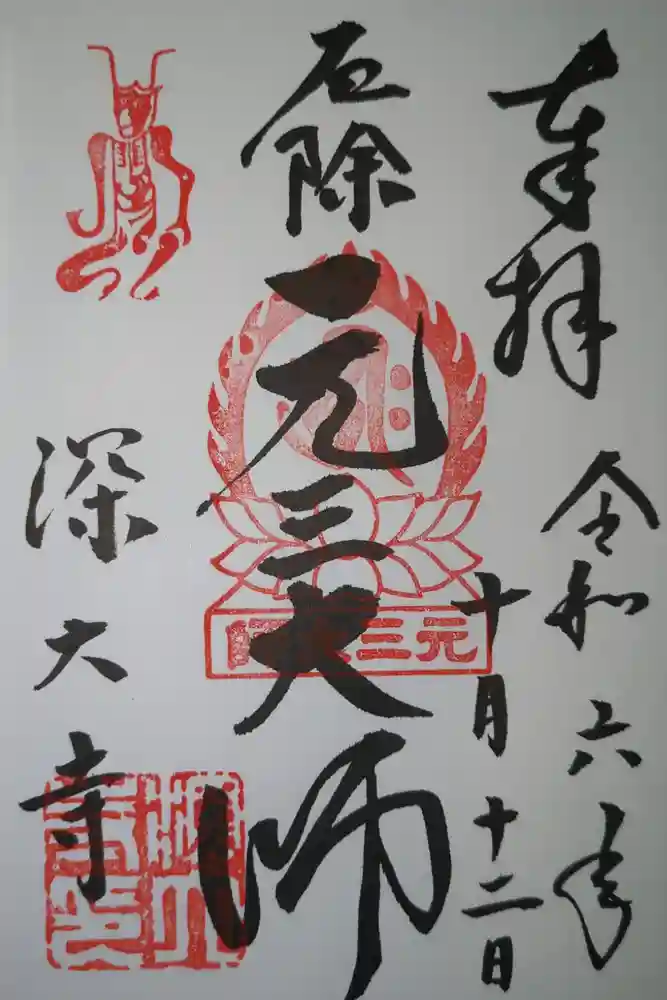 奉拝
令和六年
十月十二日
厄除
元三大師
元三大師
深大寺